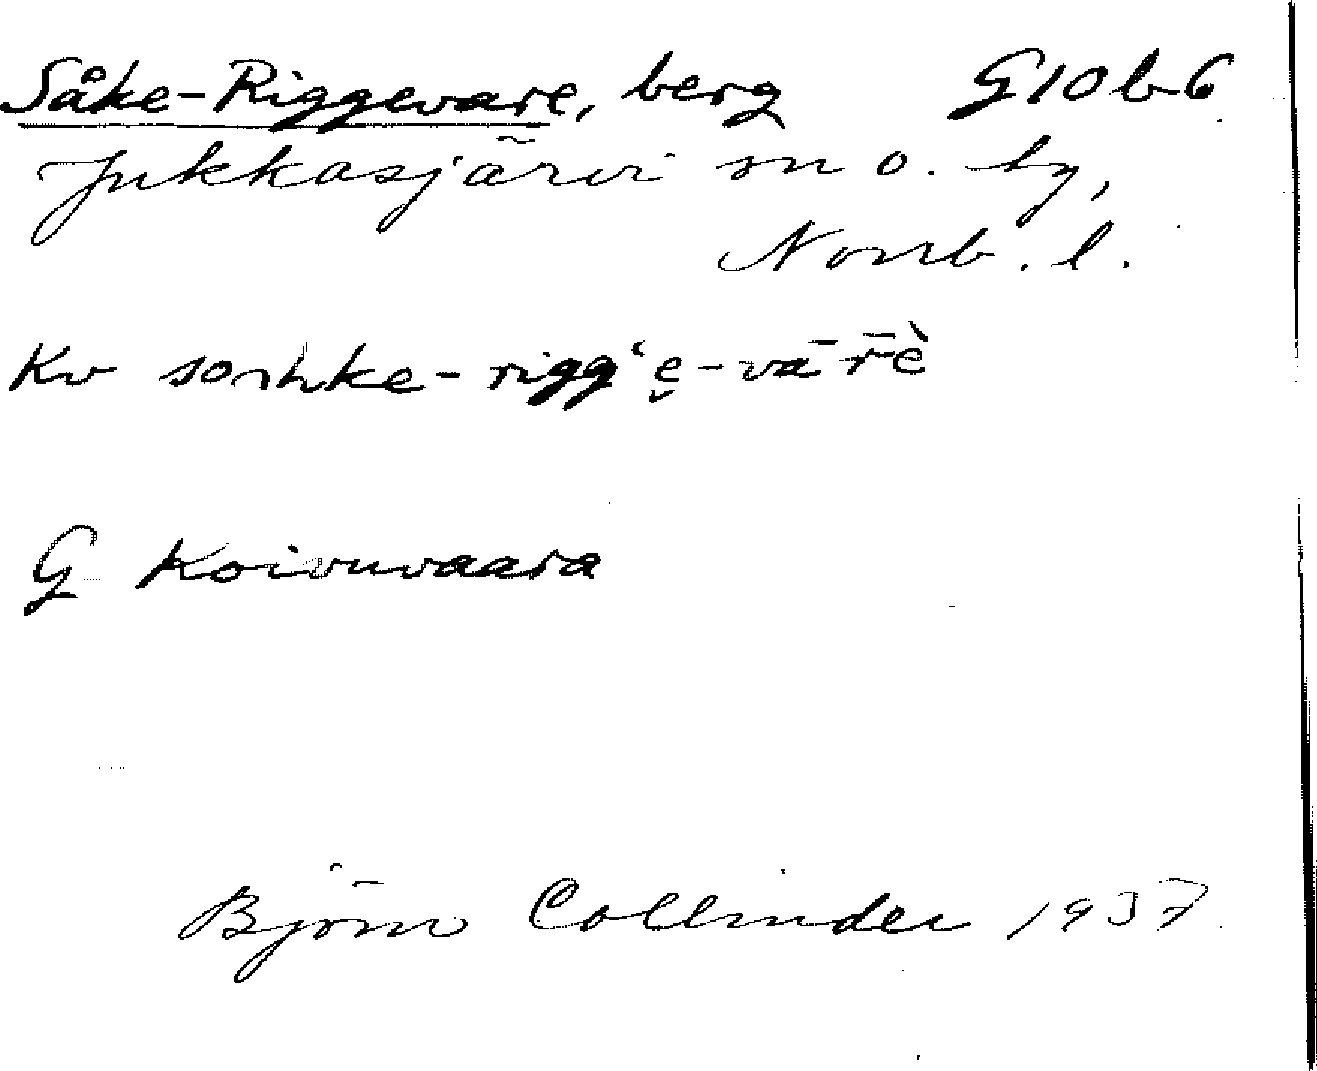 Såke-Riggevare, berg G10b6
Jukkasjärvi sn o. by,
Norrb. l.
Kv sorhke-rigg‘ḙ-vā-r̄è
G Koivuvaara
Björn Collinder 1937